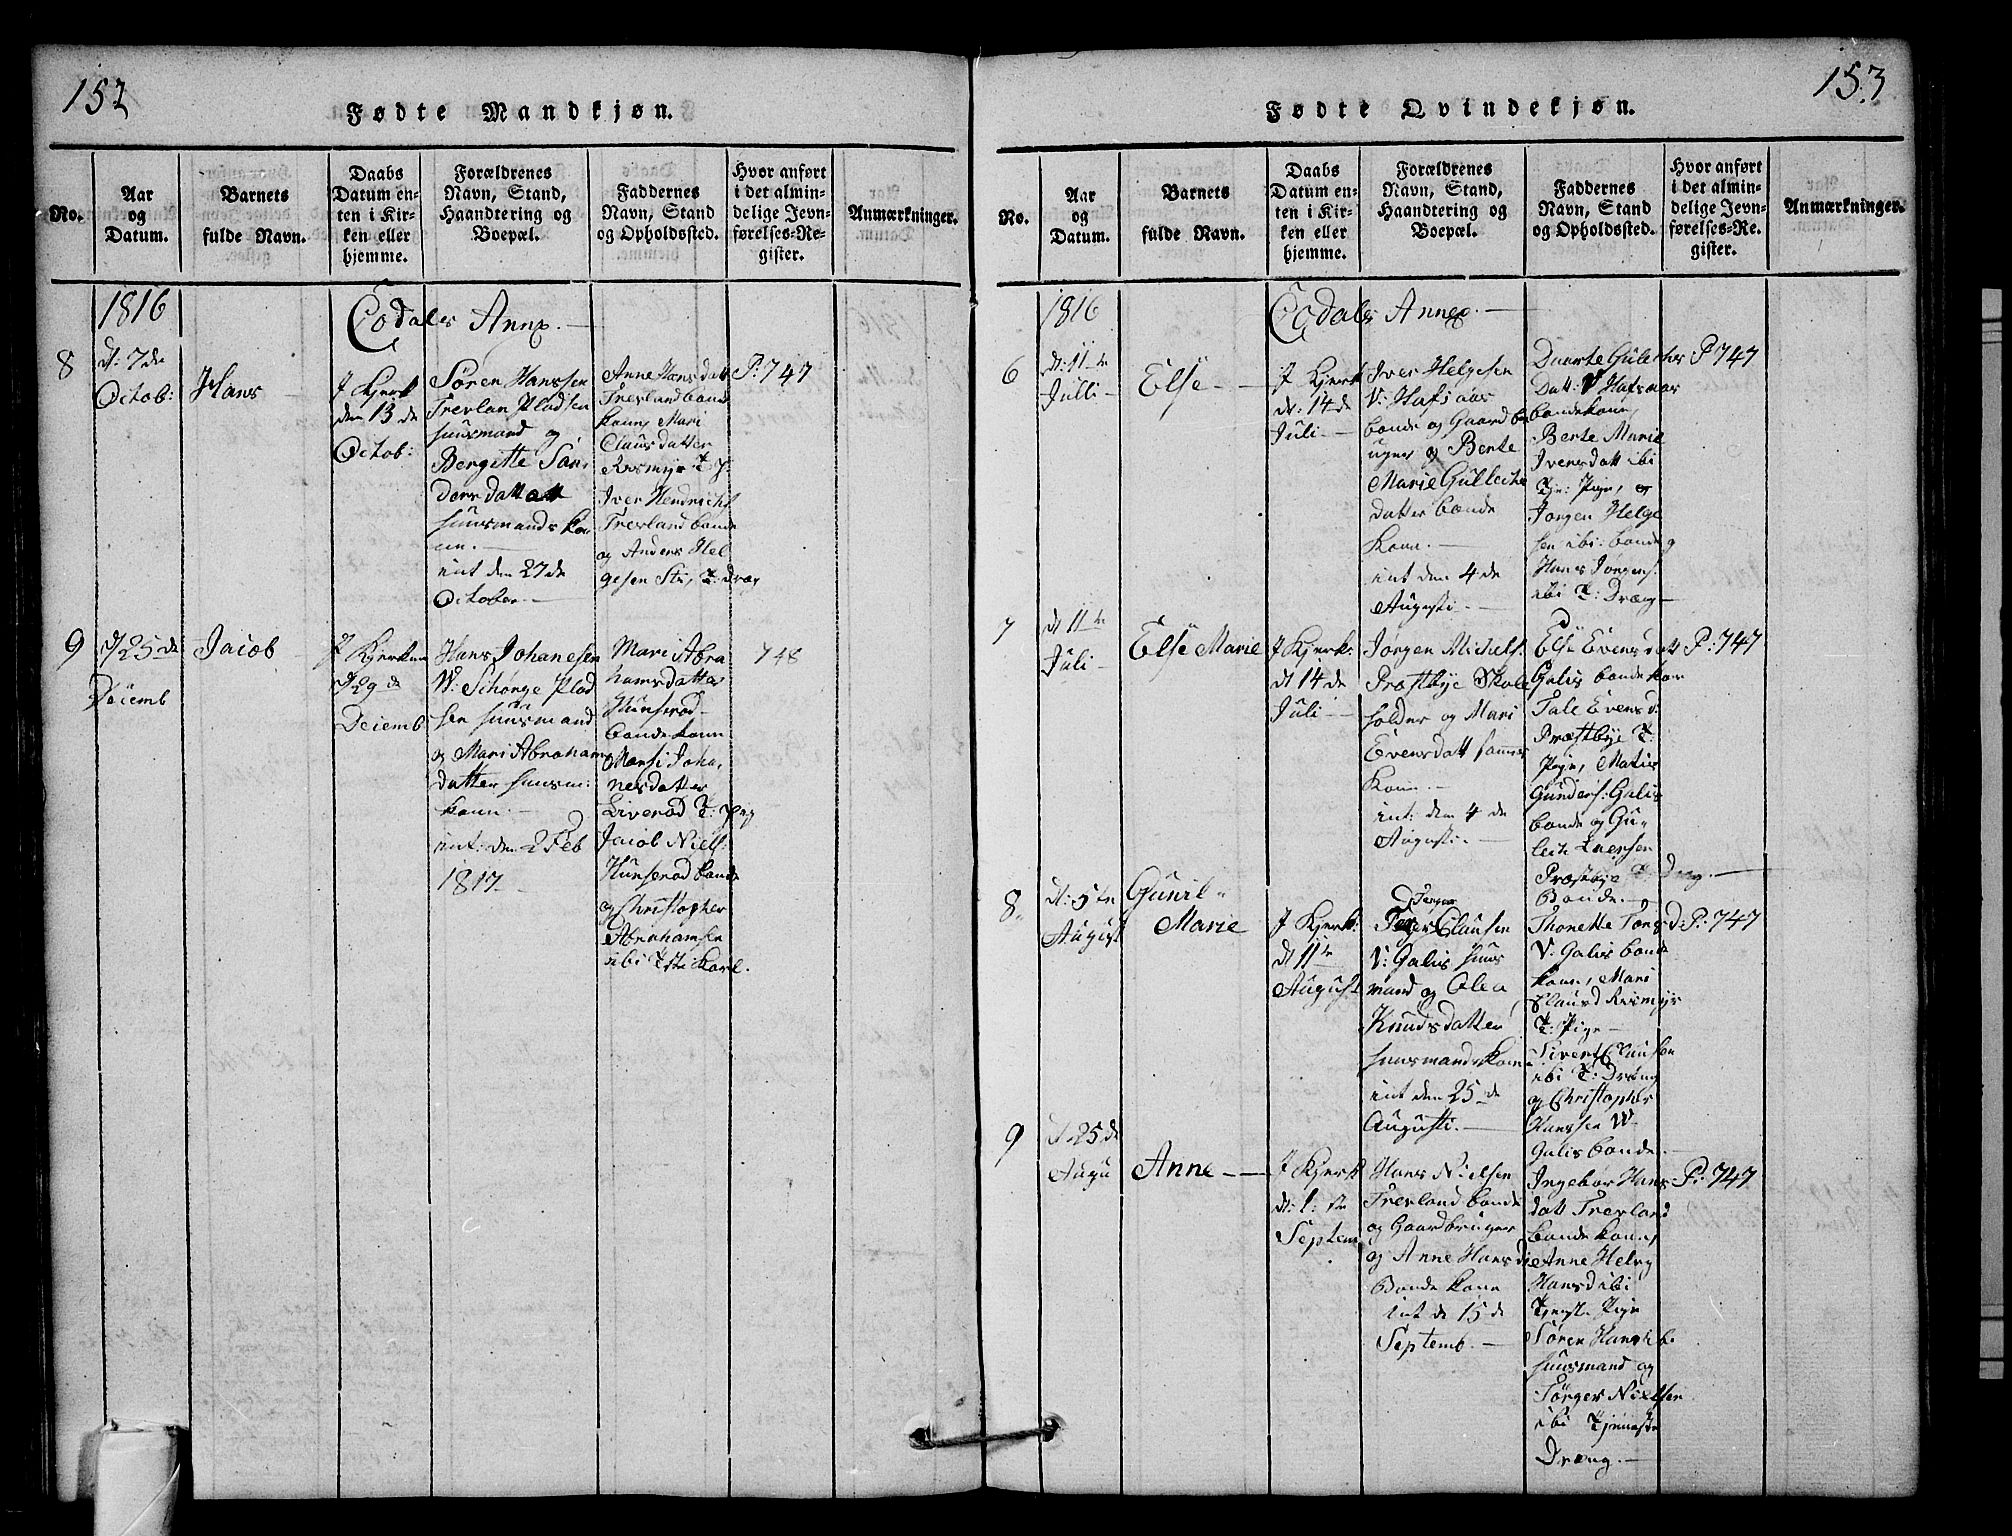 152
Fødte Mandkjøn.
No.
Aar
og
Datum.
Barnets
fulde Navn.
Daabs
Datum en-
ten i Kir-
ken eller
hjemme.
Forældrenes
Navn, Stand,
Haandtering og
Boepæl.
Faddernes
Navn, Stand
og Opholdssted.
Hvor anført
i det almin-
delige Jevn-
førelses-Re-
gister.
Anmærkninger.
1816
Eidals Annx.
8
d: 7de
Octob:
Hans
J Kjerk
den 13 de
Octob:
Søren Hanssen
Trevlan Pladsen
huusmand og
Bergitte
dersdatt
huusmands ko
ne.
int den 27de
October.
Anne Hansdatt
Trevland bonde
kone, Mari
Clausdatter
Iver Hendrichs
Trevland bonde
og Anders Hel
gesen
P: 747
9
d 25de
Decemb
Jacob
J Kjerken
d 29 de
Decemb
Hans Johanesen
Plad
sen huusmand
og Mari Abraham
datter huusm:
kone.
int: den 2 Feb
1817
Mari Abra
hamsdatter
Hunserød
bonde kone
Joha,
nesdatter
Liverød
Jacob Niels:
Hunserød bonde
og Christopher
Abrahamsen
ibi
748
153
Fødte Qvindekjøn.
No.
Aar
og
Datum.
Barnets
fulde Navn.
Daabs
Datum en-
ten i Kir-
ken eller
hjemme.
Forældrenes
Navn, Stand,
Haandtering og
Boepæl.
Faddernes
Navn, Stand
og Opholdssted.
Hvor anført
i det almin-
delige Jevn-
førelses-Re-
gister.
Anmærkninger.
1816
Eidals Annex.
6
d: 11te
Julli
Else
J Kjerk
d: 14 de
Juli
Iver Helgesen
V: Hafsaas
bonde og Gaardbr
uger og Bente
Marie Gulleichs
datter bonde
kone.
int den 4 de
Augusti.
Gulechs
Datt: V Hafsaas
bondekone,
Berte Marie
Iversdatt ibi
Tje: Pige, og
Jørgen Helge
sen ibi: bonde og
Hans Jørgens:
ibi T: Dræng
P 747
7
d 11te
Juli
Else Marie
J Kjerk:
d 14 de
Juli
Jørgen Michels:
Præstbye Skole
holder og Mari
Evensdatt sammes
kone.
int: den 4 de
Augusti.
Else Evensdatt
Galis bonde kone
Tale Evensd:
Præstbye T:
Pige, Matis
Gunders: Galis
bonde og Gu-
leich Larssen
Præstbye T: Dreng.
P: 747
8
d: 5te
August
Gunil-
Marie
J Kjerk:
d 11te
August
Jørgen
Clausen
V: Galis huus
mand og Olea
Knudsdatter
huusmands kone
int den 25 de
Augusti.
Bonde.
Thonette Torsd:
V: Galis bonde
kone, Mari
Clausd
T: Pige
Sivert Clausen
ibi T: Dræng
og Christopher
Hanssen W
Galis bonde.
P: 747
9
d 25 de
Augu
Anne
J Kjerk
d: 1: te
Septem
Hans Nielsen
Trevland bonde
og Gaardbruger
og Anne Hansd
Bonde kone
int d 15 de
Septemb.
Ingebor Hans
datt Trevland
bonde kone,
Anne Helvig
Hansd ibi
Tjenste Pige
Søren Hans ibi
huusmand og
Tørger Nielsen
ibi Tjeneste
Dreng.
P: 747